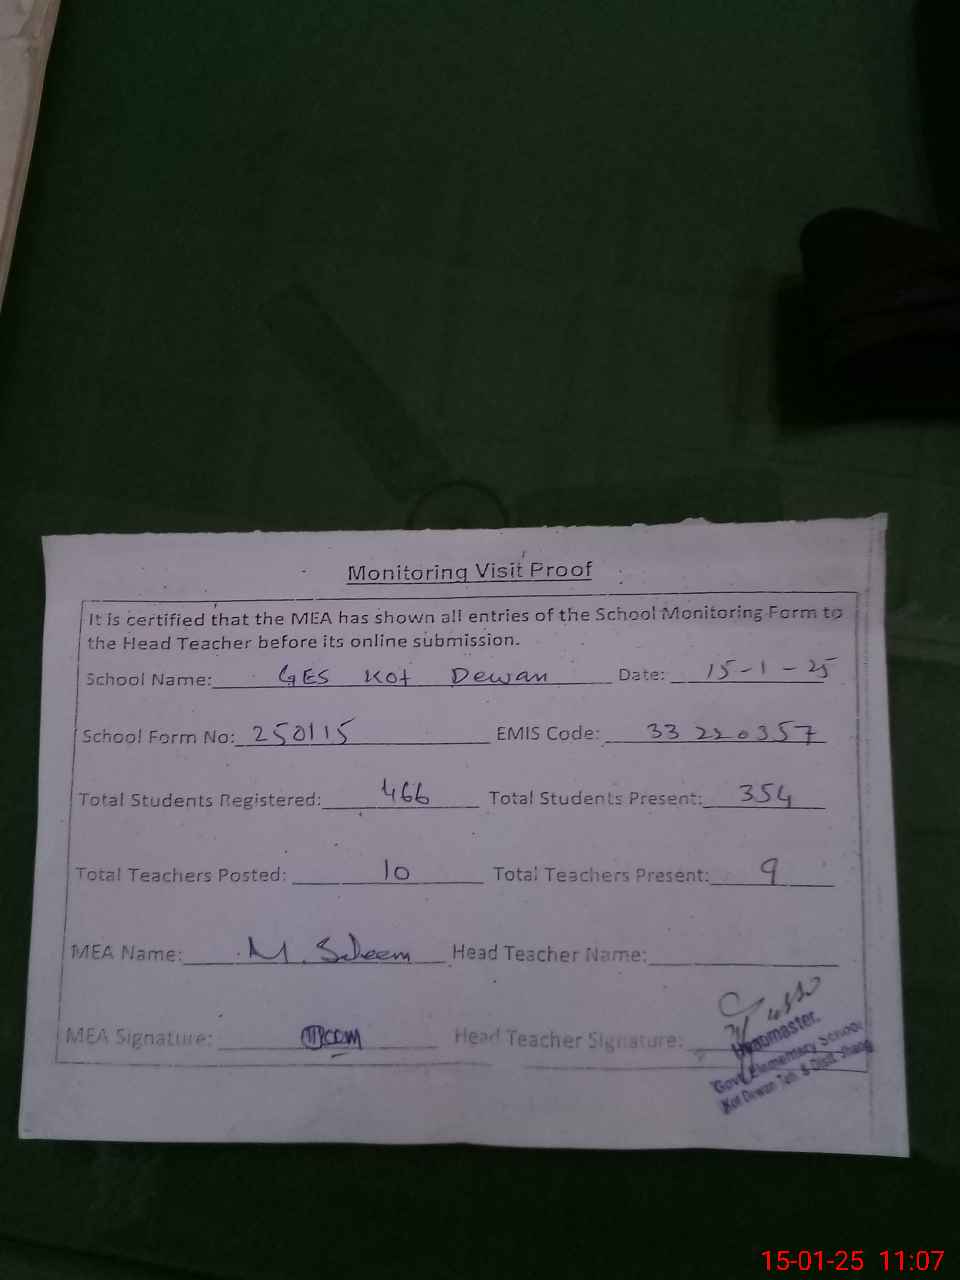 Monitoring Visit Proof
It is certified that the MEA has shown all entries of the School Monitoring Form to
the Head Teacher before its online submission.
School Name: GES Kot Dewan Date: 15-1-25
School Form No: 250115 EMIS Code: 33220357
Total Students Registered: 466 Total Students Present: 354
Total Teachers Posted: 10 Total Teachers Present: 9
MEA Name: M. Saleem Head Teacher Name:
MEA Signature: Head Teacher Signature:
Headmaster.
Govt. Elementary School
Kot Dewan Teh & Distt Jhang
15-01-25 11:07